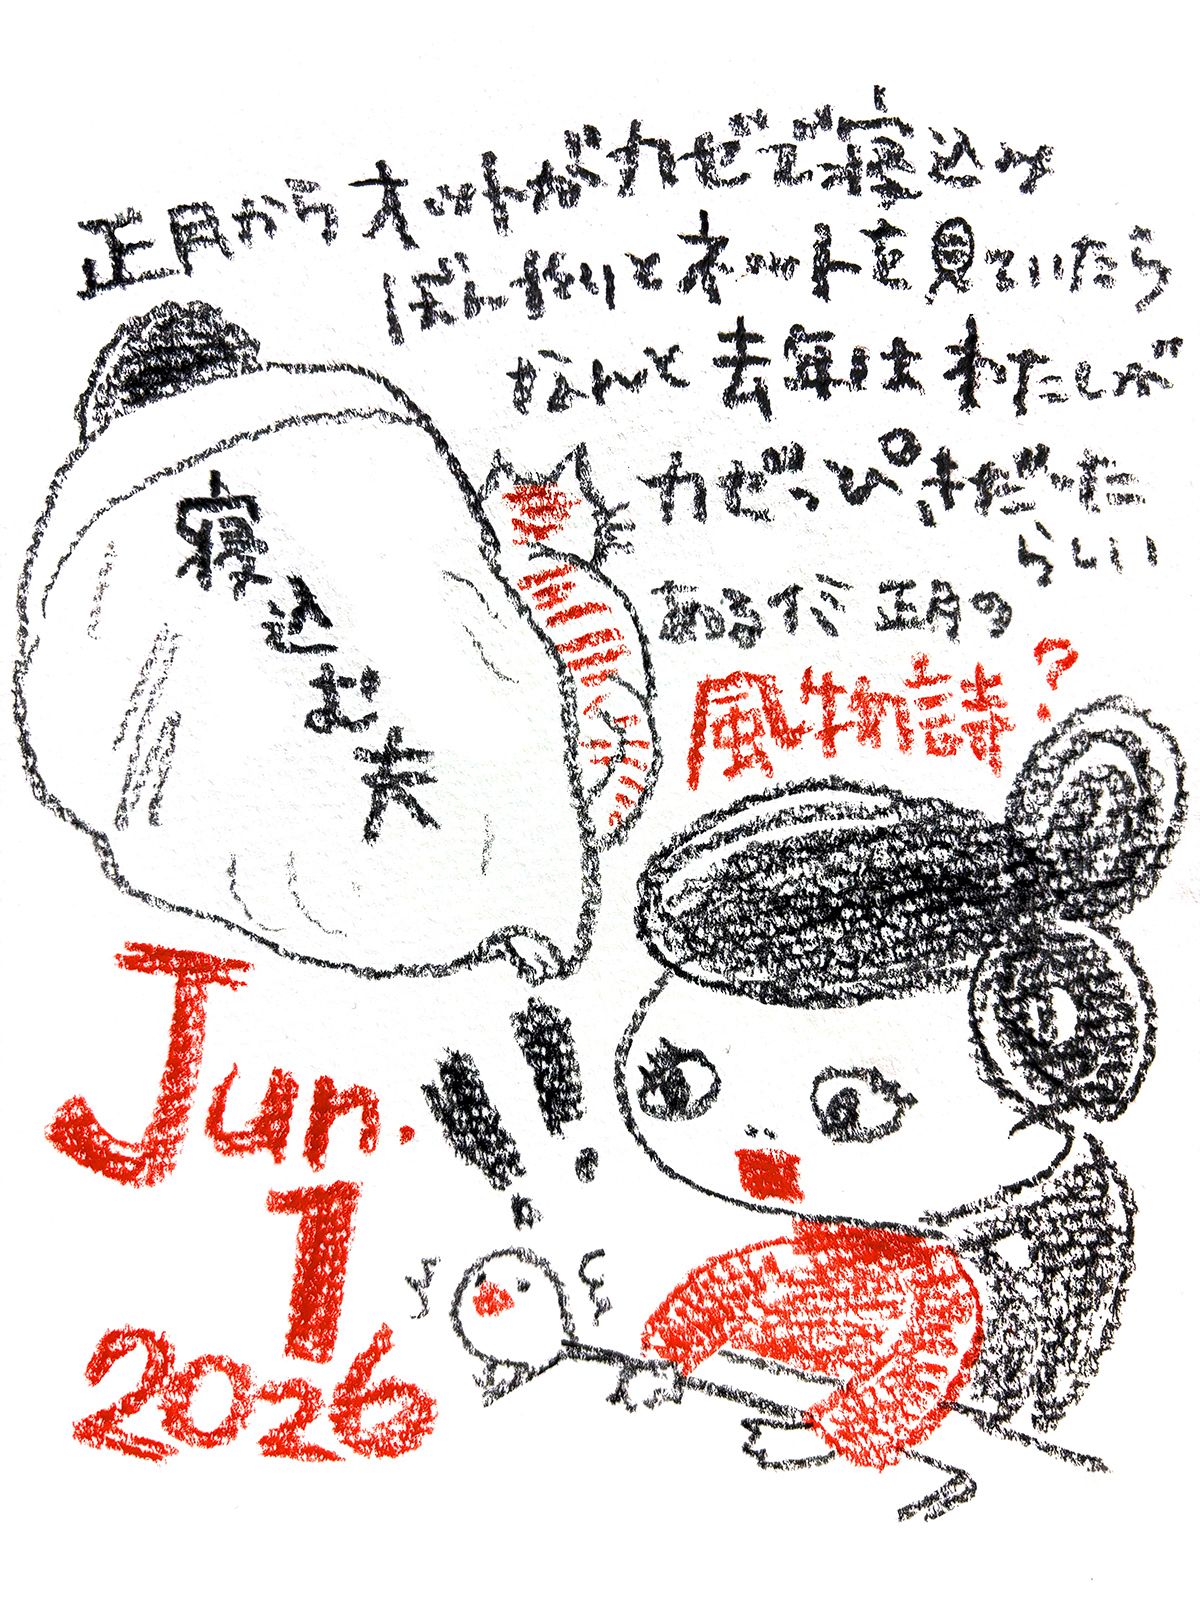 正月からオットがカゼで寝込み
ぼんやりとネットを見ていたら
なんと去年はわたしが
カゼっぴきだった
らしい
あるイミ 正月の
風物詩?
寝込む夫
!!
Jun.
1
2026